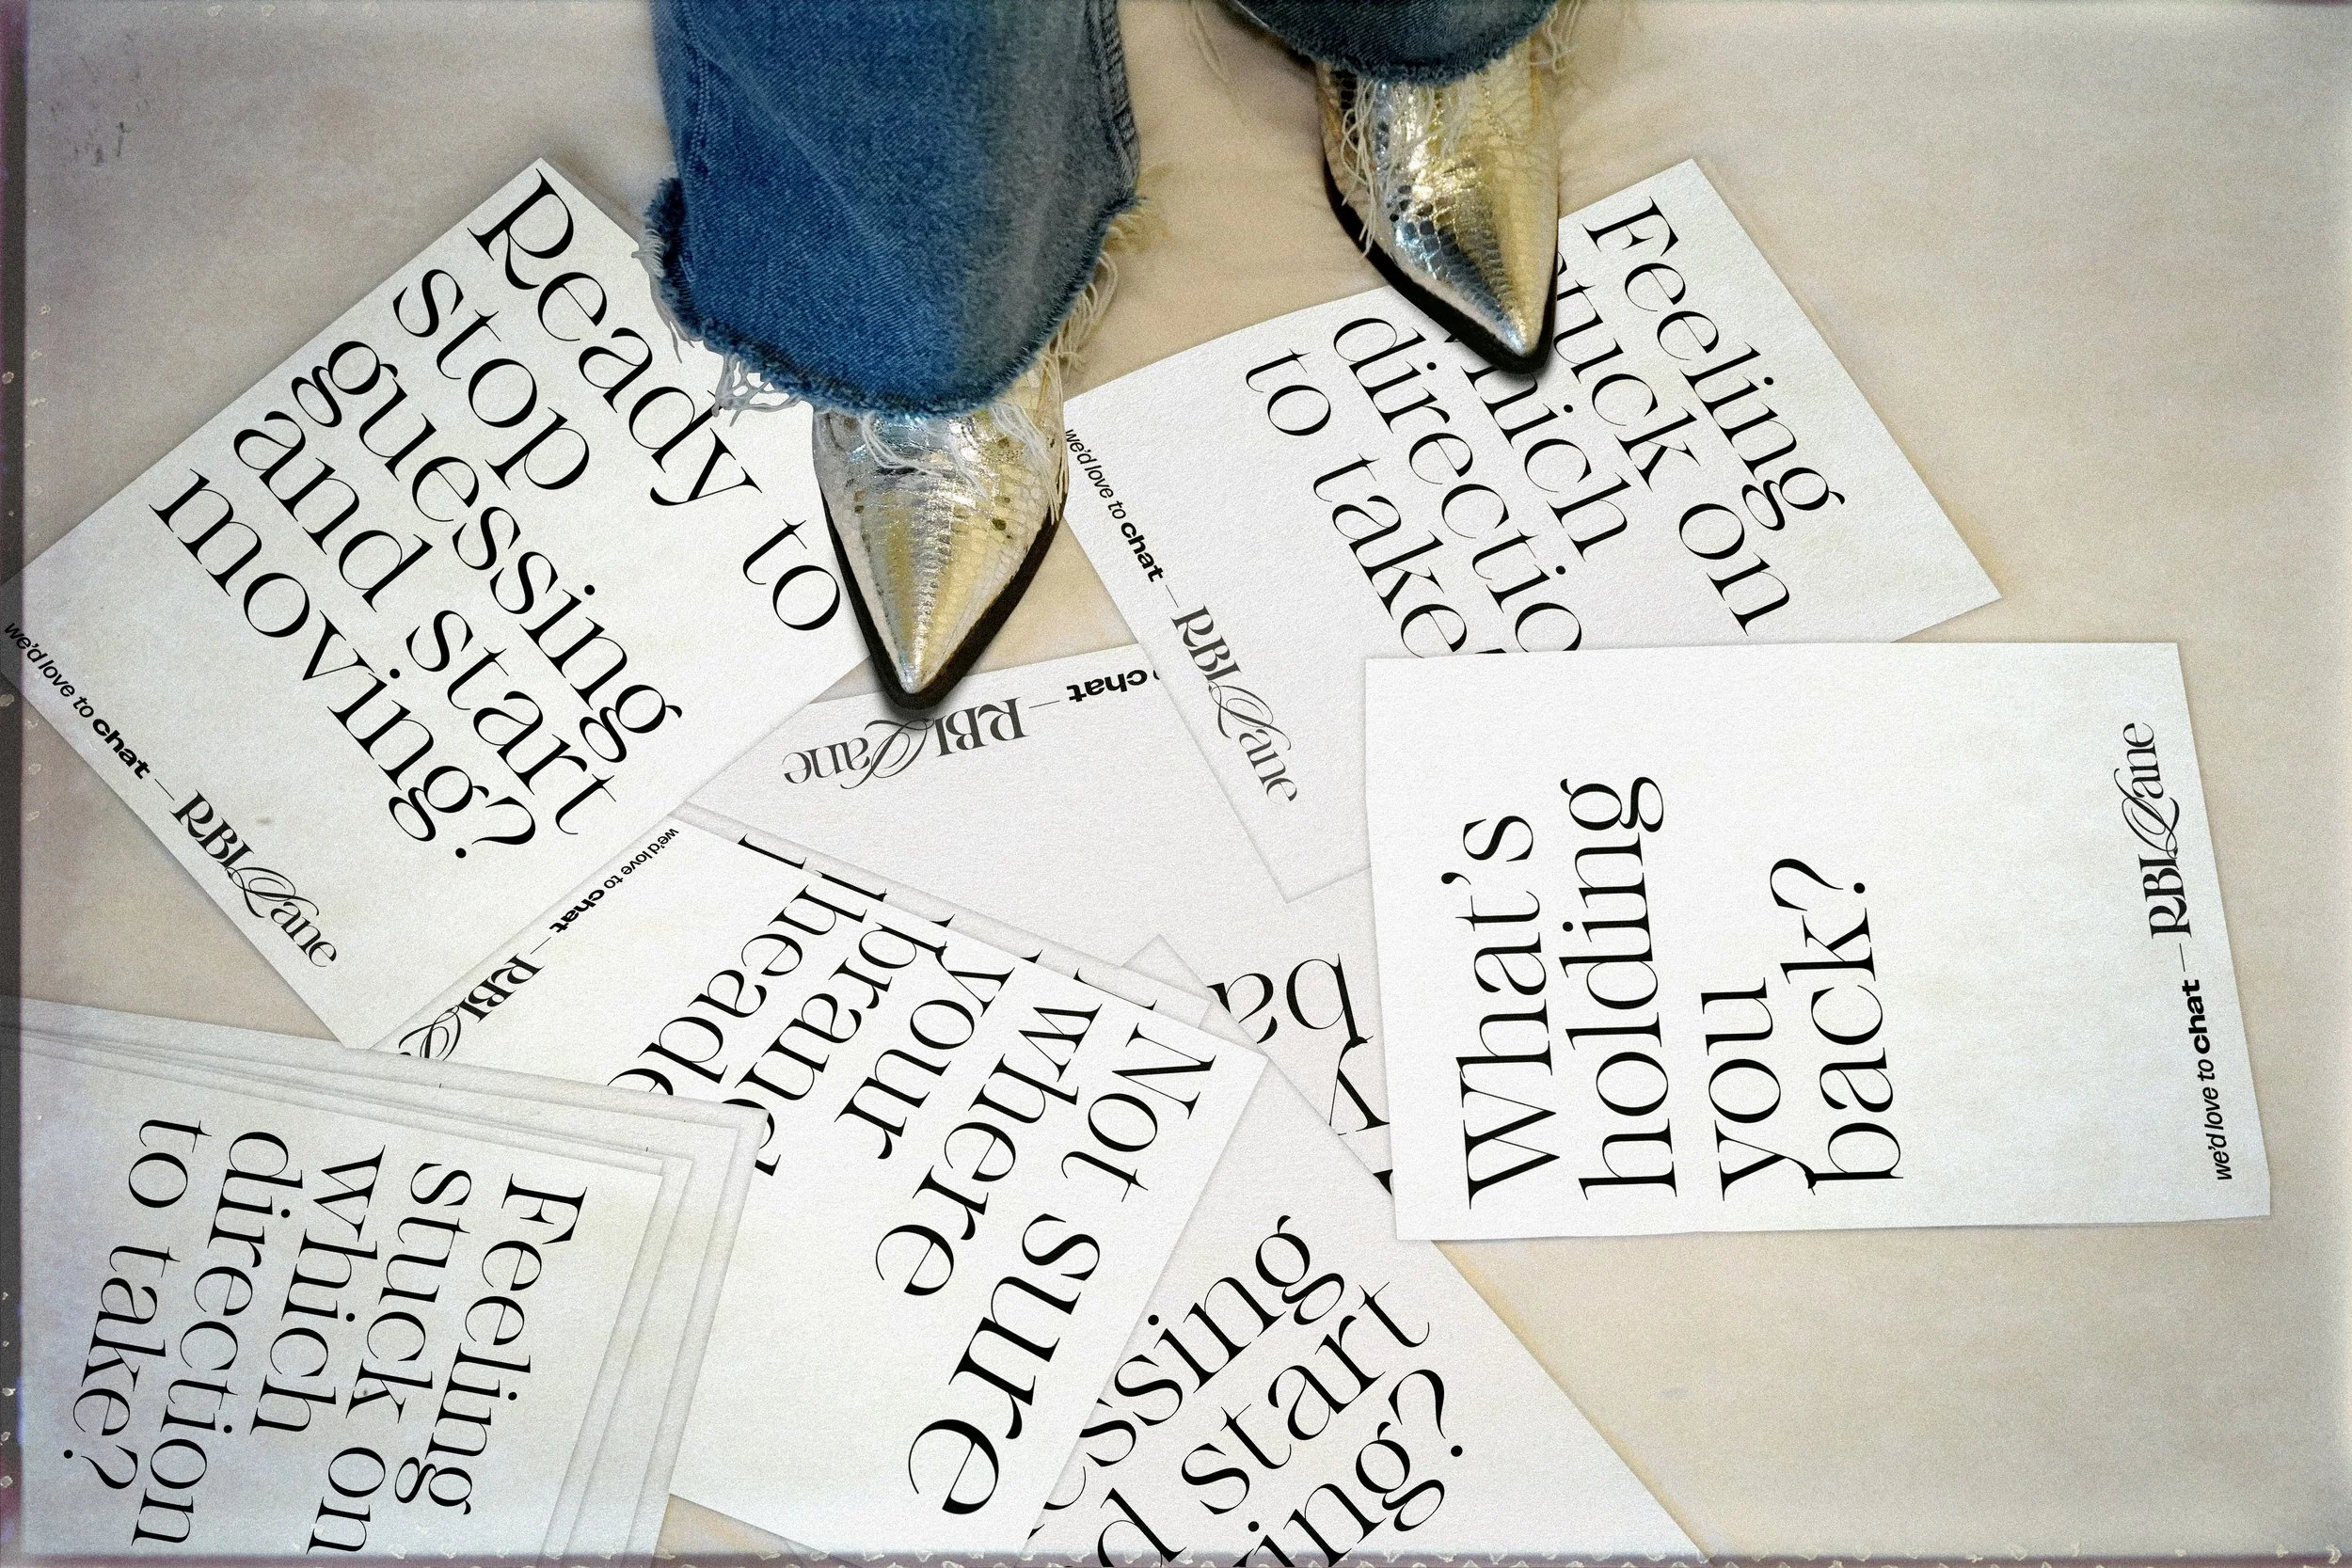 Ready to
stop
guessing
and start
moving?
we'd love to chat — RBLLane
Feeling
stuck on
which
directio
to take?
we'd love to chat — RBLLane
chat — RBLLane
ba
What's
holding
you
back?
we'd love to chat — RBLLane
Not sure
where
your
brand
heade
we'd love to chat — RBL
Feeling
stuck on
which
direction
to take?
essing
d start
ing?